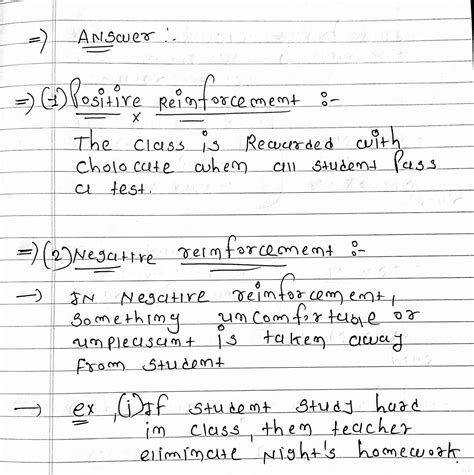 => Answer :.
=> (1) Positive Reinforcement :-
The class is Rewarded with
Cholocate when all student Pass
a test.
=> (2) Negative reinforcement :-
-> IN Negative reinforcement,
Something uncomfortable or
unpleasant is taken away
From student
-> ex, (i) If student study hard
in class, then teacher
eliminate Night's homework